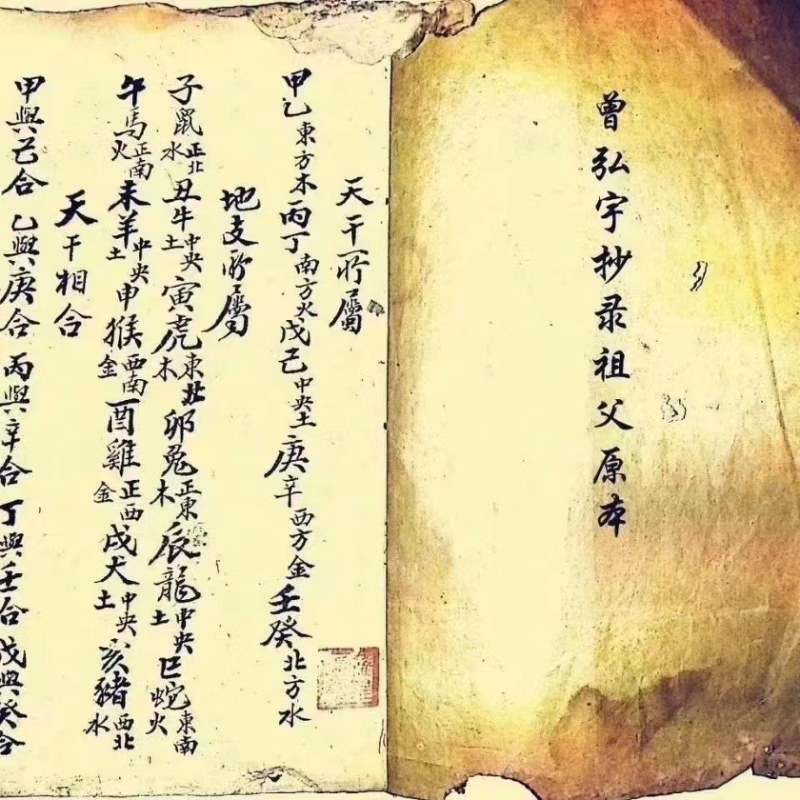 曾弘宇抄录祖父原本
天干所屬
甲乙東方木丙丁南方火戊己中央土庚辛西方金壬癸北方水
地支所屬
子鼠正北水丑牛中央土寅虎東北木卯兔正東木辰龍中央土巳蛇東南火
午馬正南火未羊中央土申猴西南金酉雞正西金戌犬中央土亥豬西北水
天干相合
甲與己合乙與庚合丙與辛合丁與壬合戊與癸合